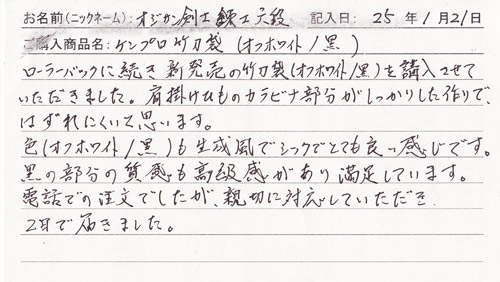 お名前(ニックネーム): オジカン剣士 錬士六段 記入日: 25年1月21日
ご購入商品名: ケンプロ竹刀袋 (オフホワイト/黒)
ローラーバックに続き新発売の竹刀袋(オフホワイト/黒)を購入させて
いただきました。肩掛けひものカラビナ部分がしっかりした作りで、
はずれにくいと思います。
色(オフホワイト/黒)も生成風でシックでとても良い感じです。
黒の部分の質感も高級感があり満足しています。
電話での注文でしたが、親切に対応していただき
2日で届きました。